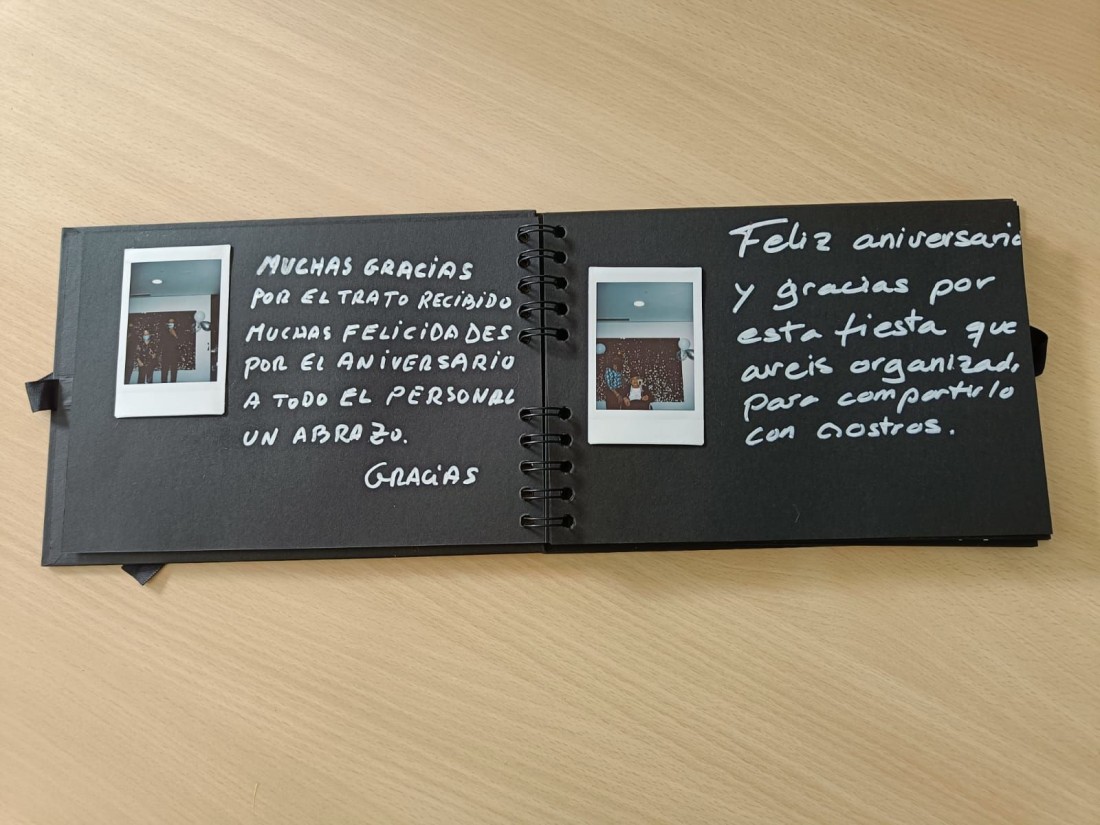 MUCHAS GRACIAS
POR EL TRATO RECIBIDO
MUCHAS FELICIDADES
POR EL ANIVERSARIO
A TODO EL PERSONAL
UN ABRAZO.
GRACIAS
Feliz aniversario
y gracias por
esta fiesta que
areis organizad.
para compartirlo
con nostros.